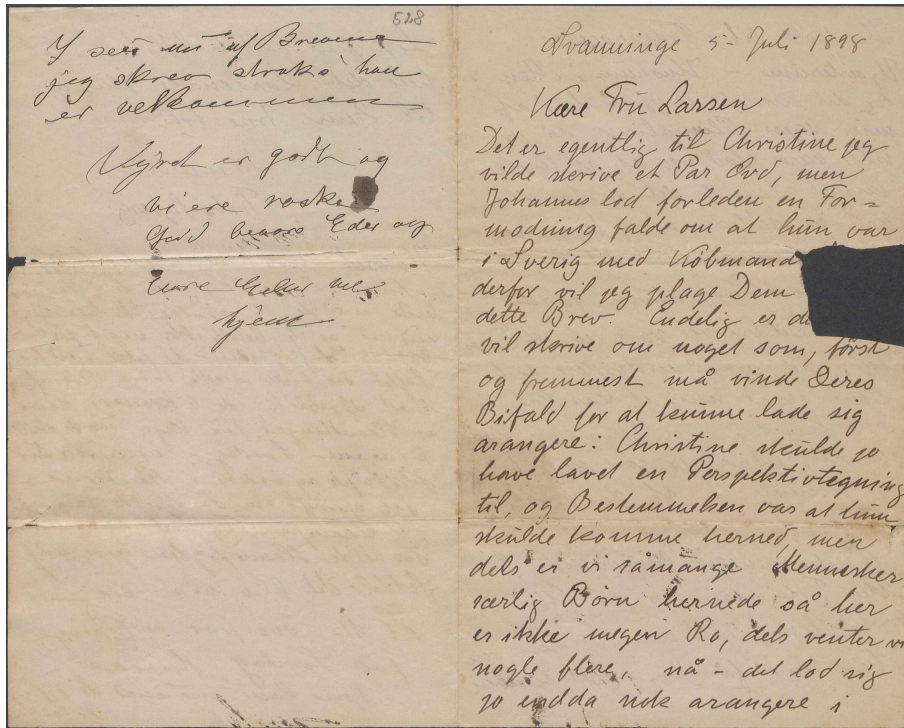 528
I ser nu af Brevene
jeg skrev straks han
er velkommen
Vejret er godt og
vi ere raske
Gud bevare Eder og
hjem
Svanninge 5 - Juli 1898
Kære Frü Larsen
Det er egentlig til Christine jeg
vilde skrive et Par Ord, men
Johannes lod forleden en For=
modning falde om at hün var
i Sverig med Köbmand
derfor vil jeg plage Dem
dette Brev. Endelig er de
vil skrive om noget som, först
og fremmest må vinde Deres
Bifald for at künne lade sig
arangere: Christine skülde jo
have lavet en Perspektivtegning
til, og Bestemmelsen var at hün
skülde komme herned, men
dels er vi såmange Mennesker
særlig Börn hernede så her
er ikke megen Ro, dels venter vi
nogle flere, nå - det lod sig
jo endda nok arangere i